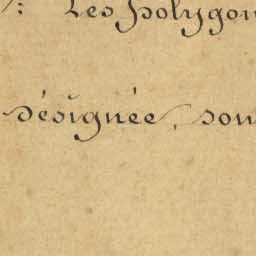 : Les polygon
désignée, son